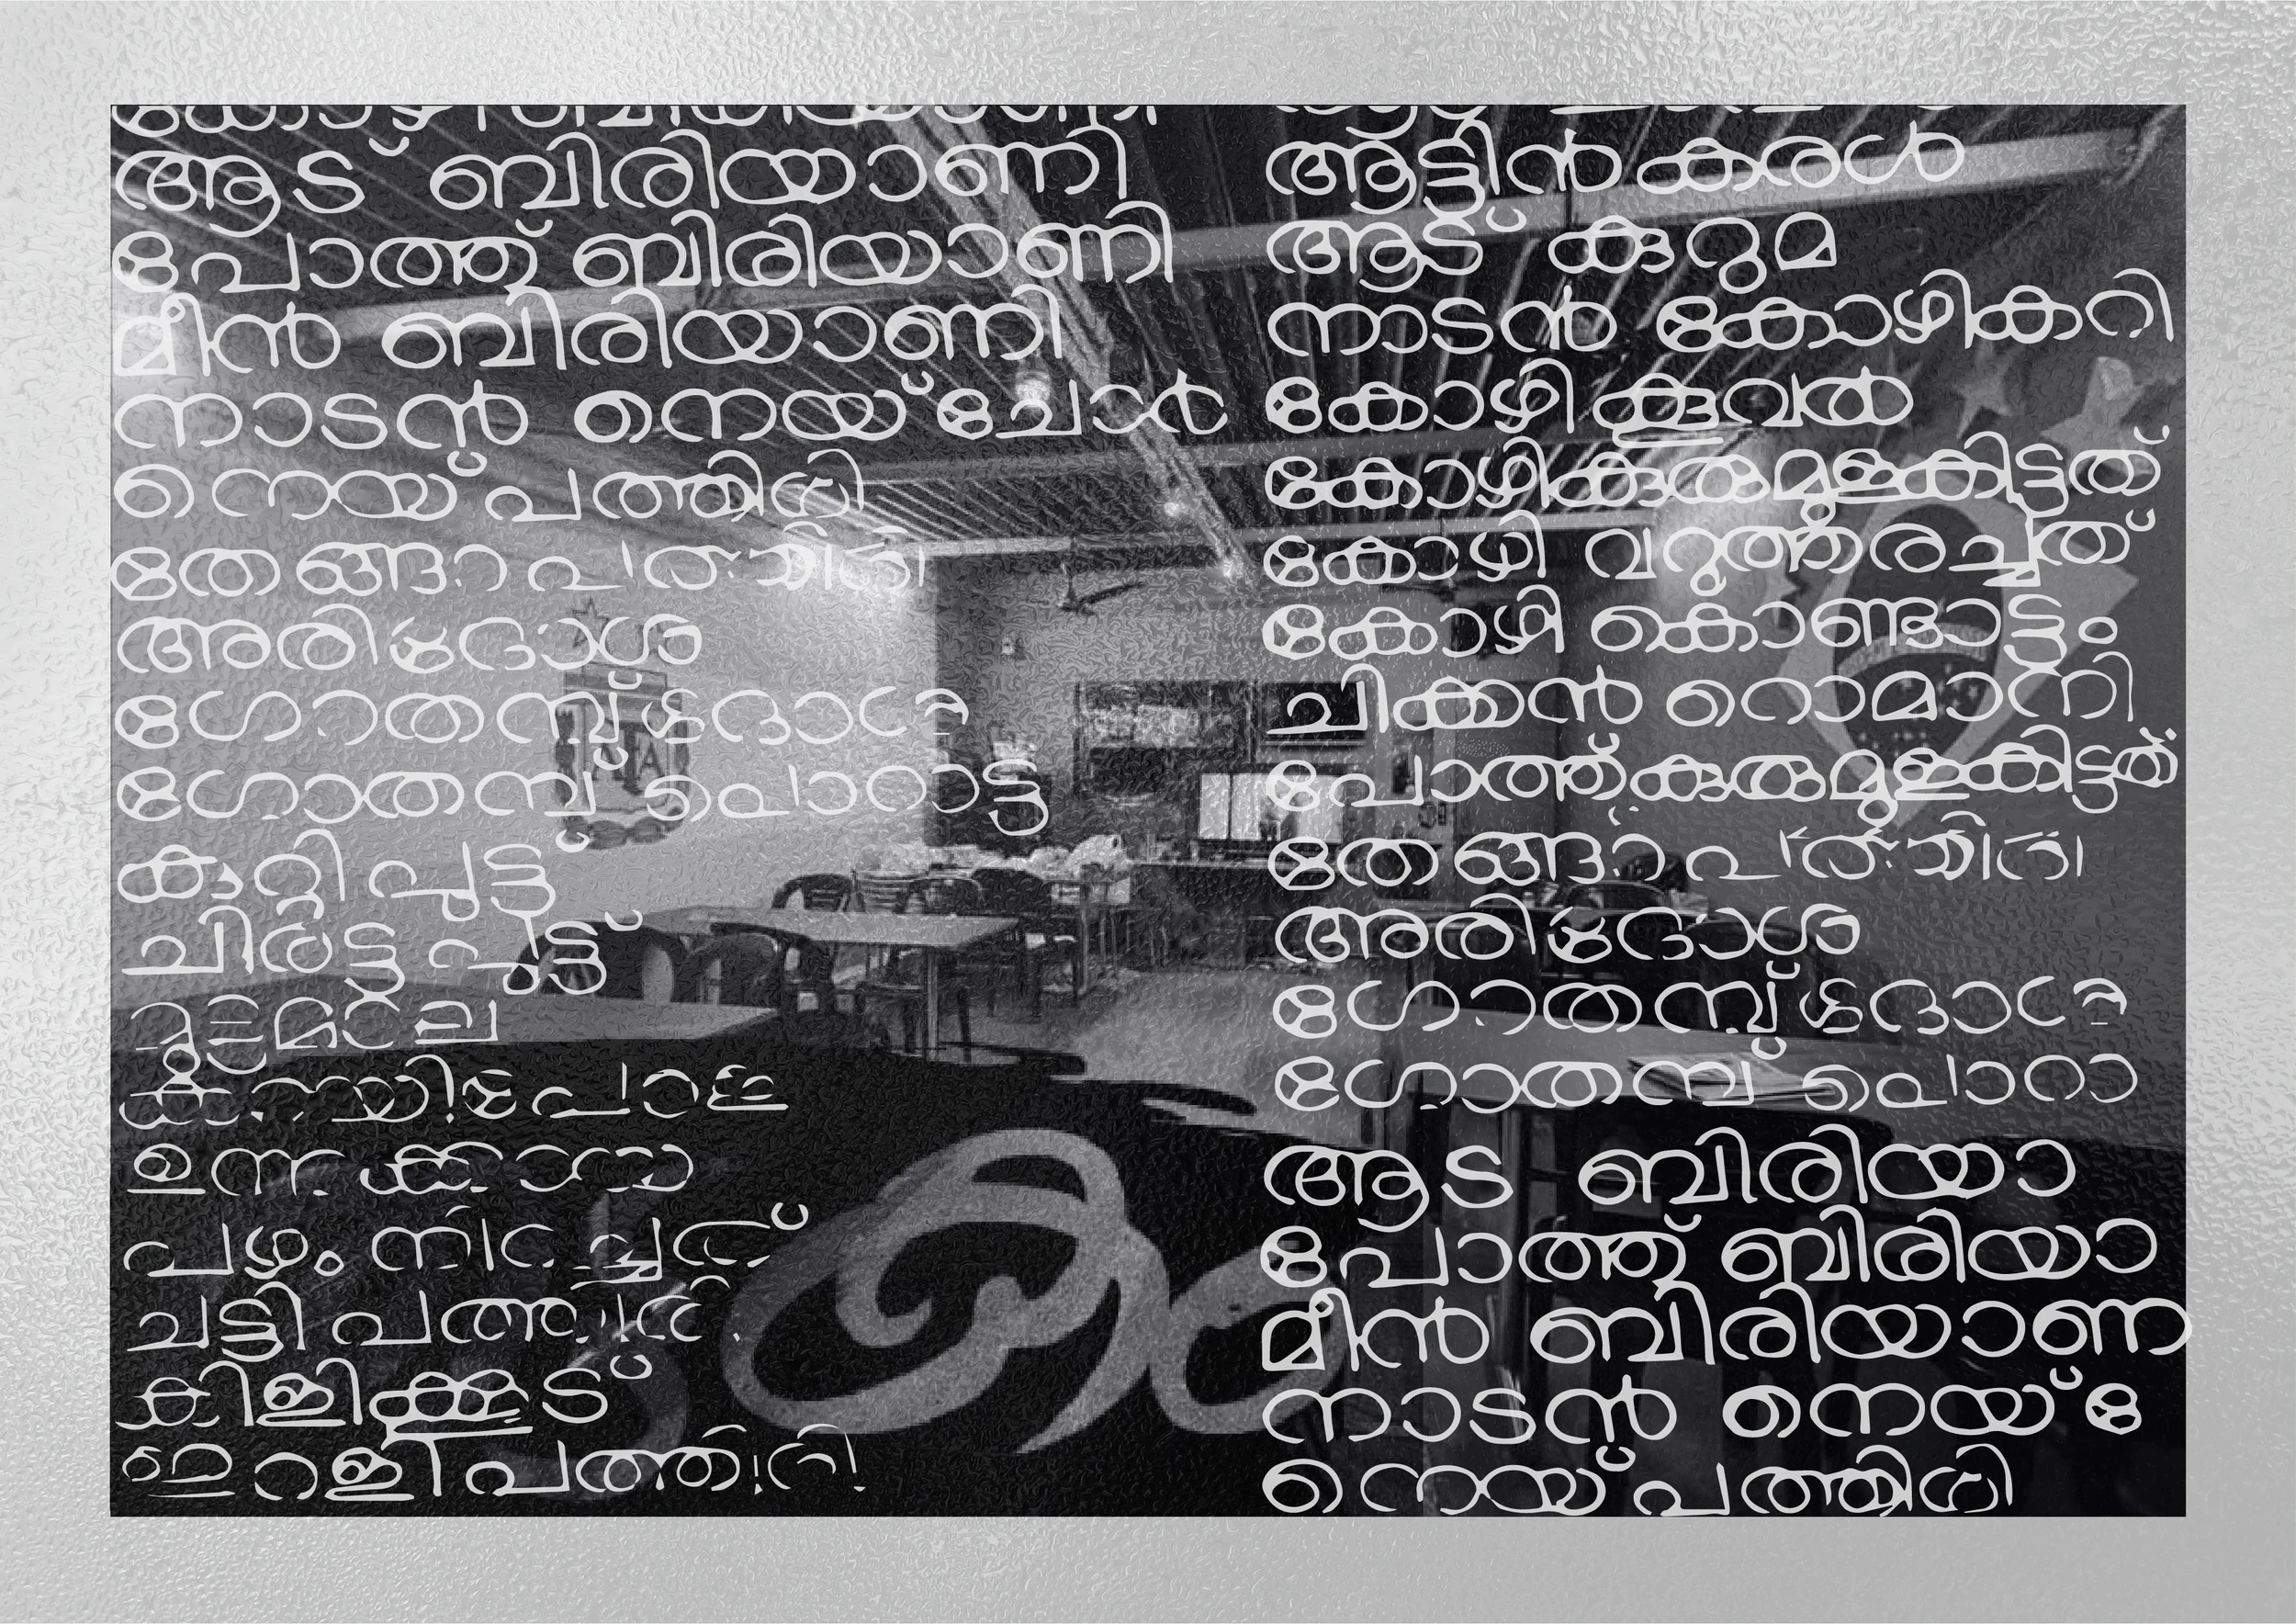 കോഴി ബിരിയാണി
ആട് ബിരിയാണി
പോത്ത് ബിരിയാണി
മീൻ ബിരിയാണി
നാടൻ നെയ്ചോർ
നെയ്പത്തിരി
തേങ്ങാപത്തിരി
അരിദോശ
ഗോതമ്പ്ദോശ
ഗോതമ്പ് പൊറാട്ട
കുറ്റിപുട്ട്
ചിരട്ടപുട്ട്
മുട്ടമാല
കായിപോള
ഉന്നക്കായ
പഴം നിറച്ചത്
ചട്ടിപത്തിരി
കിളിക്കൂട്
ഇറളിപത്തിരി
ആട്ടിൻകരൾ
ആട് കുറുമ
നാടൻ കോഴികറി
കോഴി കൂവൽ
കോഴികുരുമുളകിട്ടത്
കോഴി വറുത്തരച്ചത്
കോഴി കൊണ്ടാട്ടം
ചിക്കൻ റൊമാനി
പോത്ത്കുരുമുളകിട്ടത്
തേങ്ങാപത്തിരി
അരിദോശ
ഗോതമ്പ്ദോശ
ഗോതമ്പ് പൊറാ
ആട ബിരിയാ
പോത്ത് ബിരിയാ
മീൻ ബിരിയാണ
നാടൻ നെയ്േ
നെയ്പത്തിരി
AFA